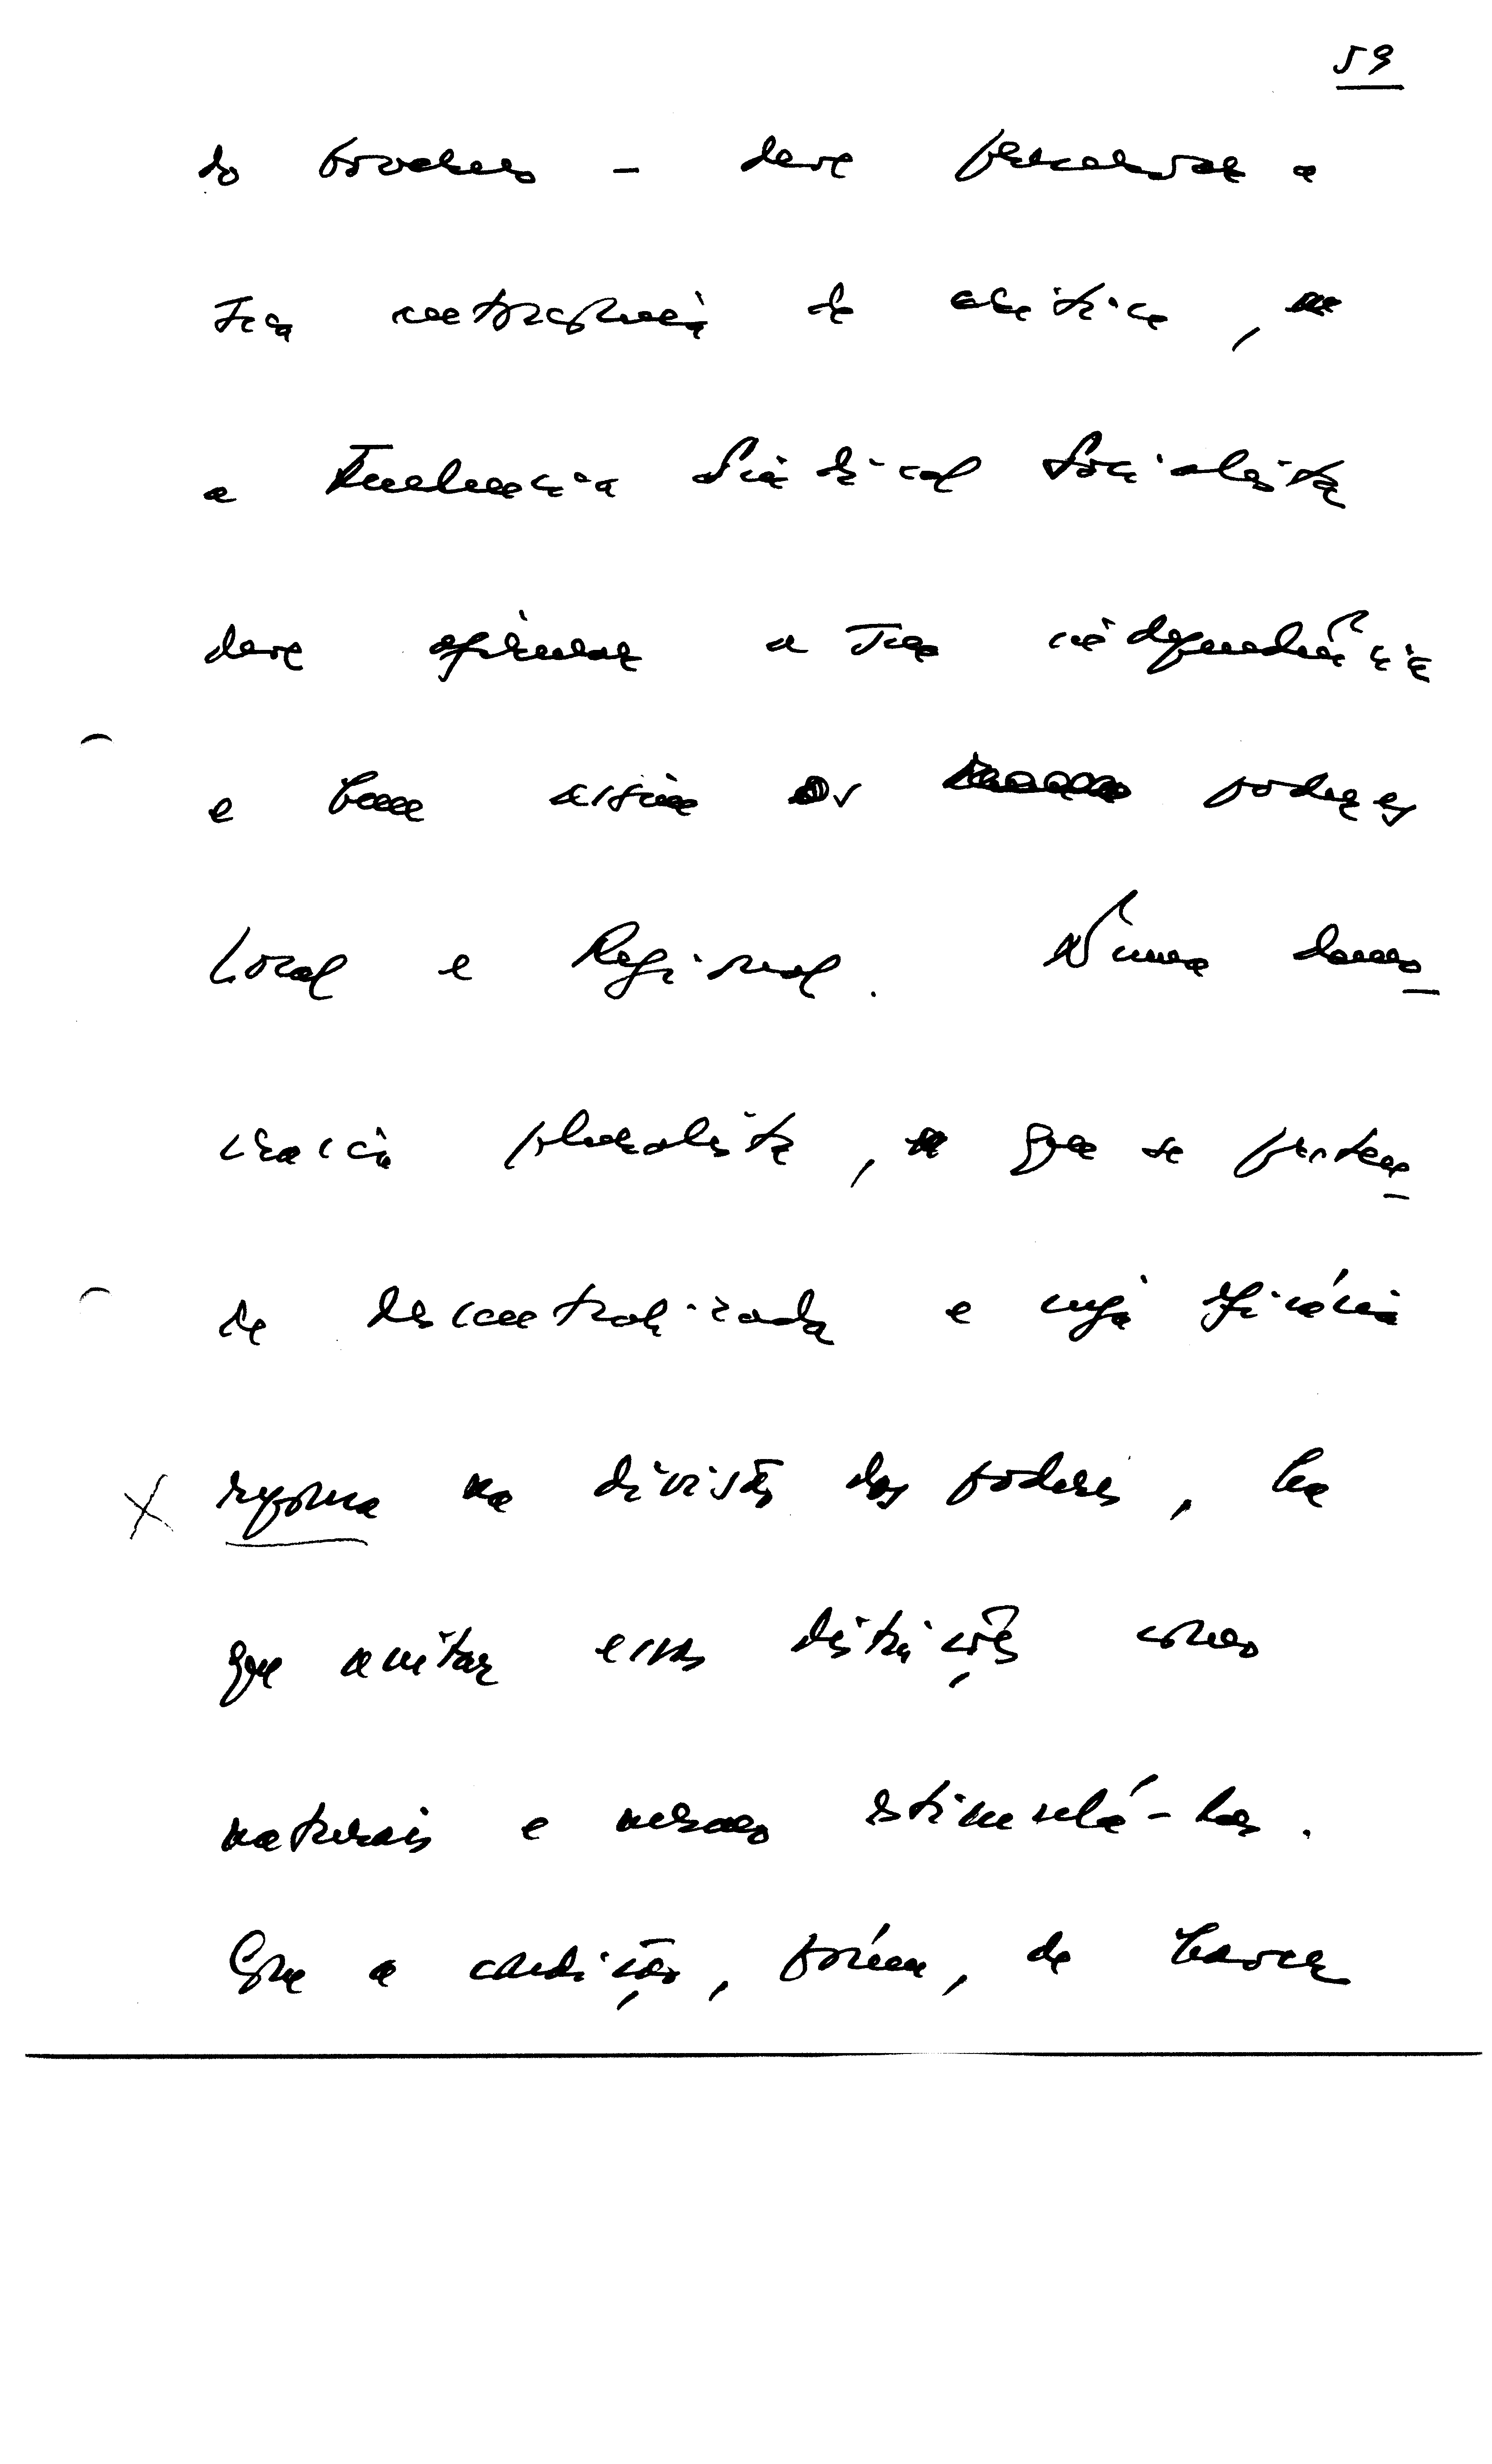 59
do Governo – deve preservar a
sua autonomia de crítica,
a Tendência Sindical Socialista
deve afirmar a sua independência
e bem assim os poderes
Local e Regional. Numa demo-
cracia pluralista, que se preten-
de descentralizada e cuja eficácia
repousa na divisão dos poderes, há
que aceitar essas distinções como
naturais e mesmo estimulá-las.
Que a condição, porém, de haver